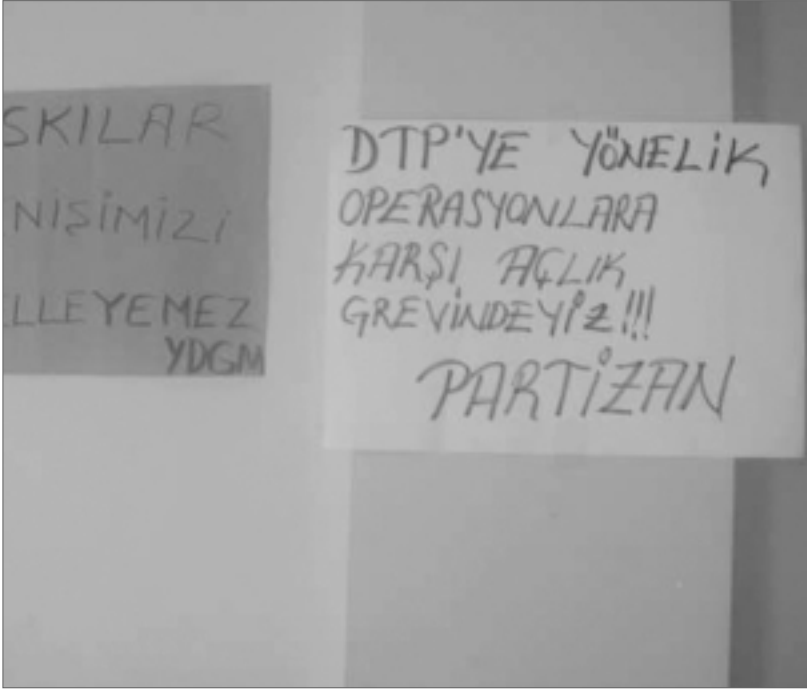 SKILAR
NİŞİMİZİ
LLEYEMEZ
YDGM
DTP'YE YÖNELİK
OPERASYONLARA
KARŞI AÇLIK
GREVİNDEYİZ!!!
PARTİZAN